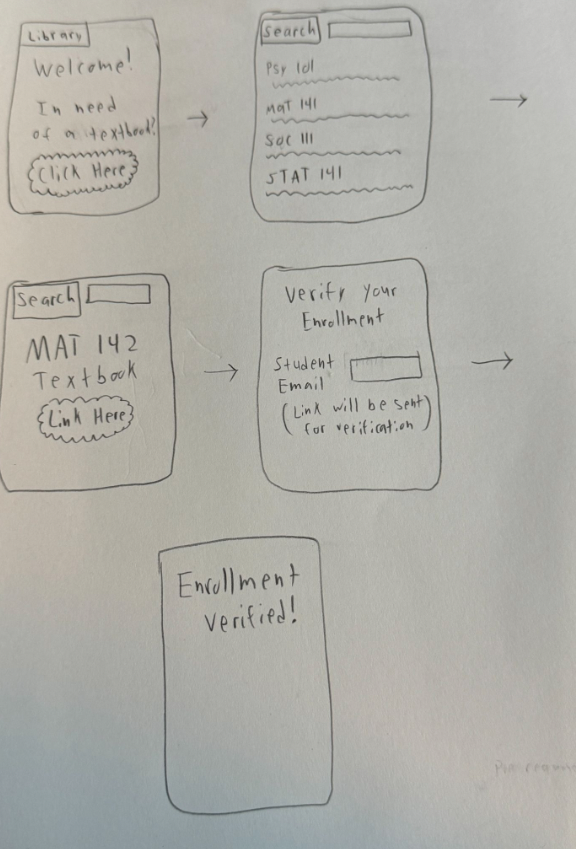 Library
Welcome!
In need
of a textbook?
Click Here
Search
Psy 101
MAT 141
Soc 111
STAT 141
Search
MAT 142
Textbook
Link Here
Verify Your
Enrollment
Student
Email
(Link will be sent
for verification)
Enrollment
Verified!